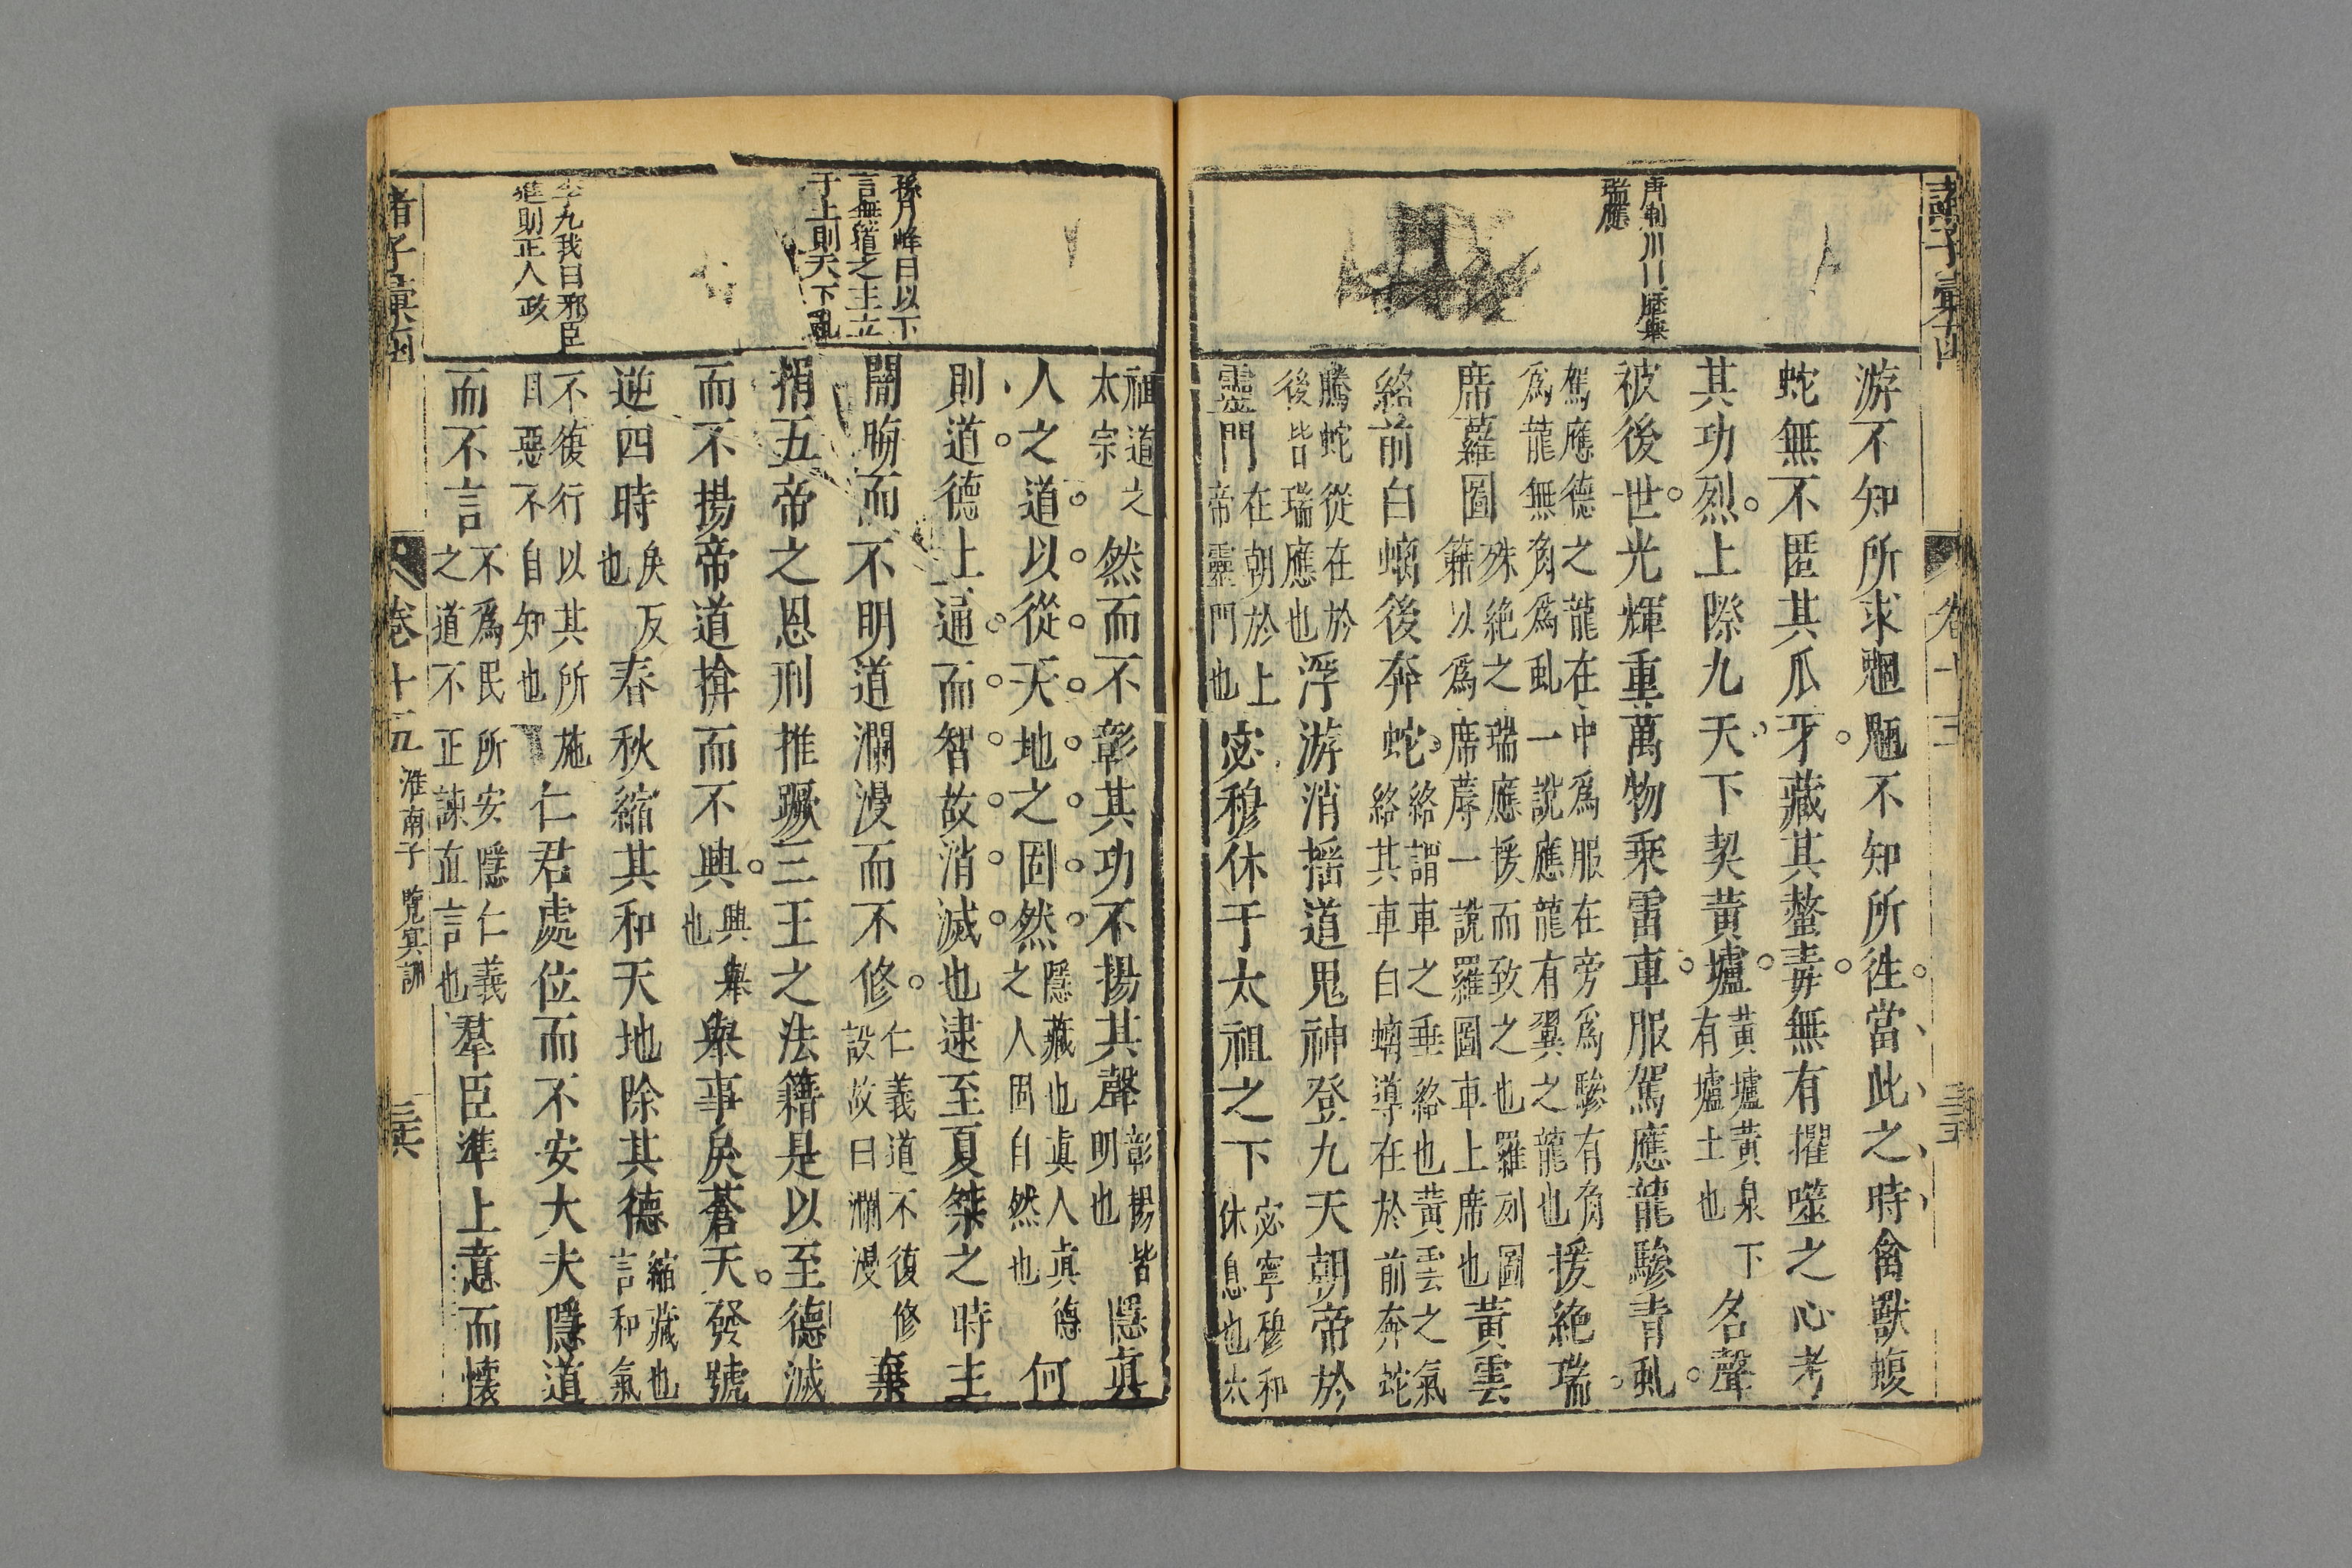 諸子彙函
卷十五
三十五
唐荊川曰歷舉
瑞應
游不知所求魍魎不知所往當此之時禽獸蝮
蛇無不匿其爪牙藏其螫毒無有攫噬之心考
其功烈上際九天下契黃壚黃壚黃泉下有壚土也名聲
被後世光輝重萬物乘雷車服駕應龍驂青虬
駕應德之龍在中爲服在旁爲驂有角爲龍無角爲虬一說應龍有翼之龍也援絕瑞
席蘿圖殊絕之瑞應援而致之也羅列圖籍以爲席蓐一說羅圖車上席也黃雲
絡前白螭後奔蛇絡謂車之垂絡也黃雲之氣絡其車白螭導在於前奔蛇
騰蛇從在於後皆瑞應也浮游消摇道鬼神登九天朝帝於
靈門在朝於上帝靈門也宓穆休于太祖之下宓寧穆和休息也太
孫月峰曰以下
言無道之主立
于上則天下亂
李九我曰邪臣
進則正人敗
祖道之太宗然而不彰其功不揚其聲彰揚皆明也隱真
人之道以從天地之固然隱藏也真人真德之人固自然也何
則道德上通而智故消滅也逮至夏桀之時主
闇晦而不明道瀾漫而不修仁義道不復修設故曰瀾漫棄
捐五帝之恩刑推蹶三王之法籍是以至德滅
而不揚帝道揜而不興興舉也舉事戾蒼天發號
逆四時戾反也春秋縮其和天地除其德縮藏也言和氣
不復行以其所施自惡不自知也仁君處位而不安大夫隱道
而不言不爲民所安隱仁義之道不正諫直言也羣臣準上意而懷
諸子彙函
卷十五
淮南子
覽冥訓
三六